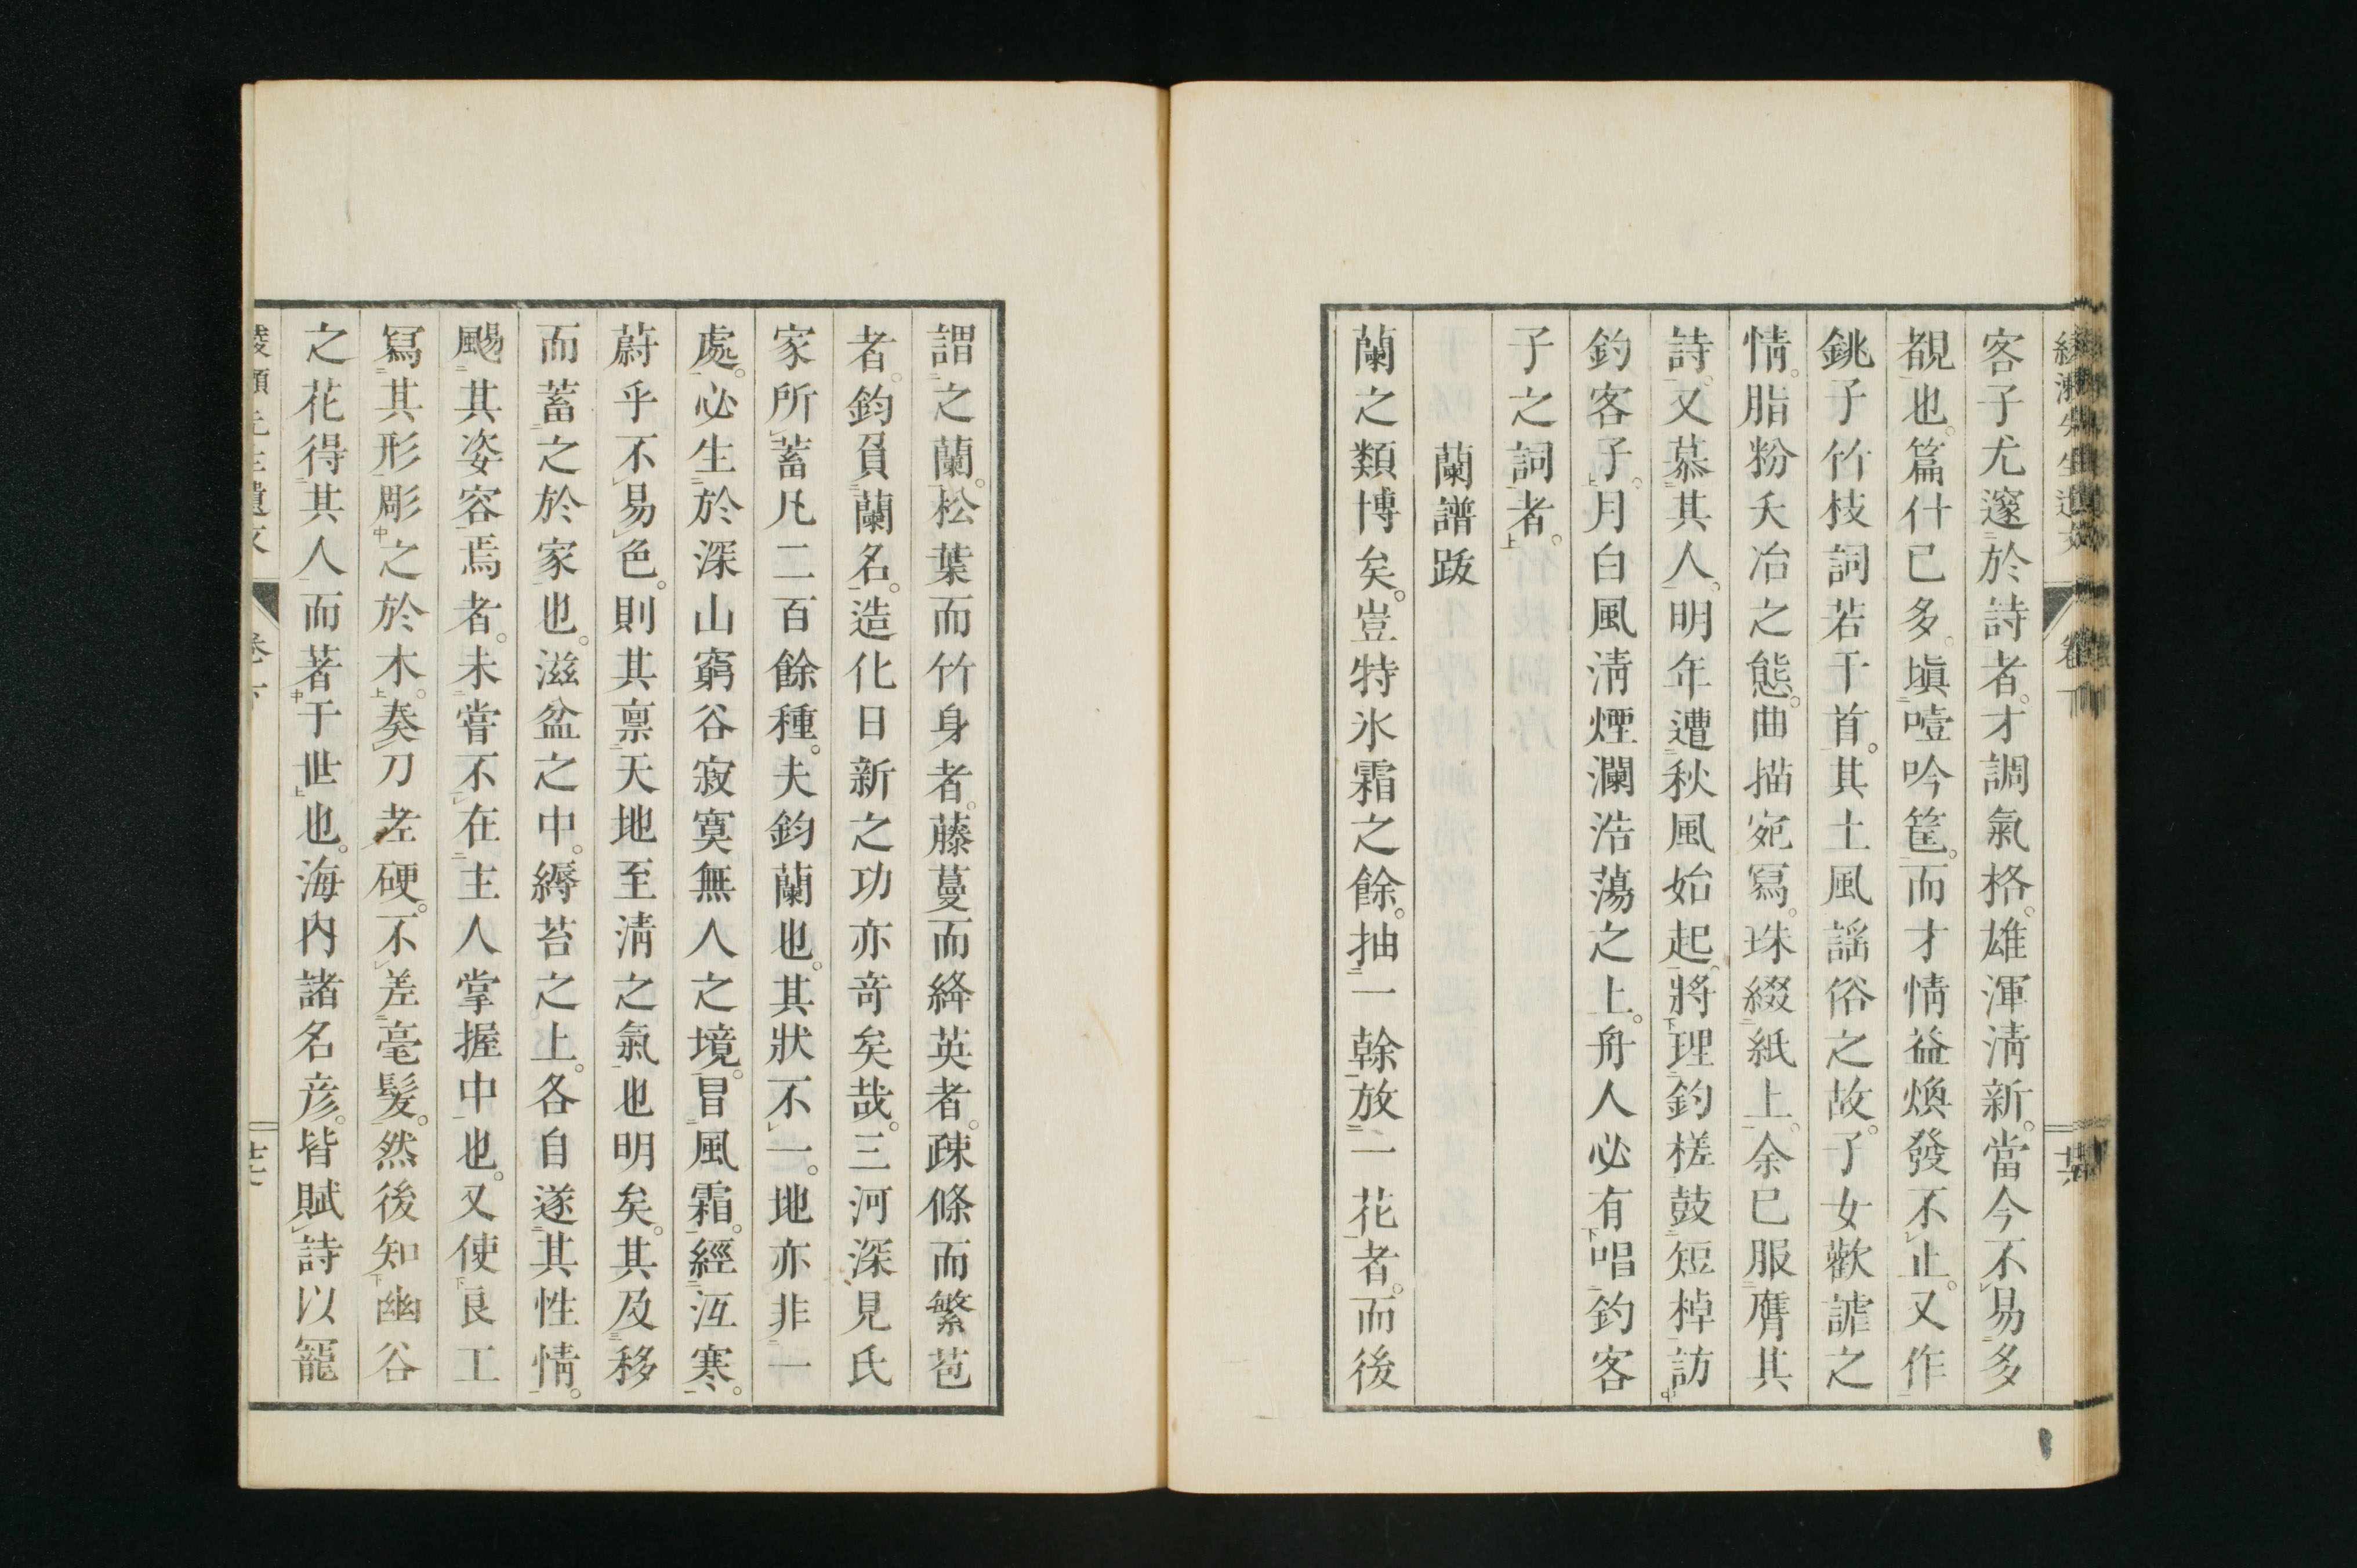 客子尤邃於詩者。才調氣格。雄渾淸新。當今不易多
覩也。篇什已多。塡噎吟筐。而才情益煥發不止。又作
銚子竹枝詞若干首。其土風謠俗之故。了女歡謔之
情。脂粉夭冶之態。曲描宛寫。珠綴紙上。余已服膺其
詩。又慕其人。明年遭秋風始起。將理釣槎鼓短棹訪
釣客子。月白風淸煙瀾浩蕩之上。舟人必有唱釣客
子之詞者。
蘭譜跋
蘭之類博矣。豈特氷霜之餘。抽一榦放一花者。而後
謂之蘭。松葉而竹身者。藤蔓而絳英者。疎條而繁苞
者。鈞負蘭名。造化日新之功亦奇矣哉。三河深見氏
家所蓄凡二百餘種。夫鈞蘭也。其狀不一。地亦非一
處。必生於深山窮谷寂寞無人之境。冒風霜。經沍寒。
蔚乎不易色。則其禀天地至淸之氣也明矣。其及移
而蓄之於家也。滋盆之中。縟苔之上。各自遂其性情。
颺其姿容焉者。未嘗不在主人掌握中也。又使良工
寫其形彫之於木。奏刀荖硬。不差毫髮。然後知幽谷
之花得其人而著于世也。海內諸名彦。皆賦詩以寵
綾瀨先生遺文 卷下 廿六
綾瀨先生遺文 卷下